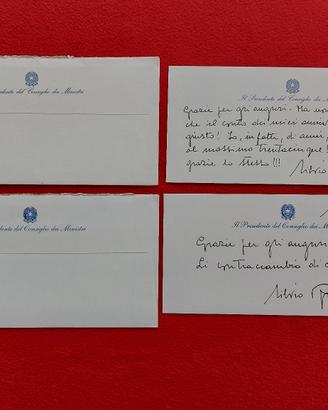 sidente del Consiglio dei Ministri
Il Presidente del Consiglio dei M
Grazie per gli auguri. Ma no
che il conto dei miei anni
giusto! Io, infatti, di anni,
al massimo trentacinque!
grazie lo stesso!!!
Silvio
Presidente del Consiglio dei Ministri
Il Presidente del Consiglio dei Mi
Grazie per gli auguri
Li contraccambio di c
Silvio